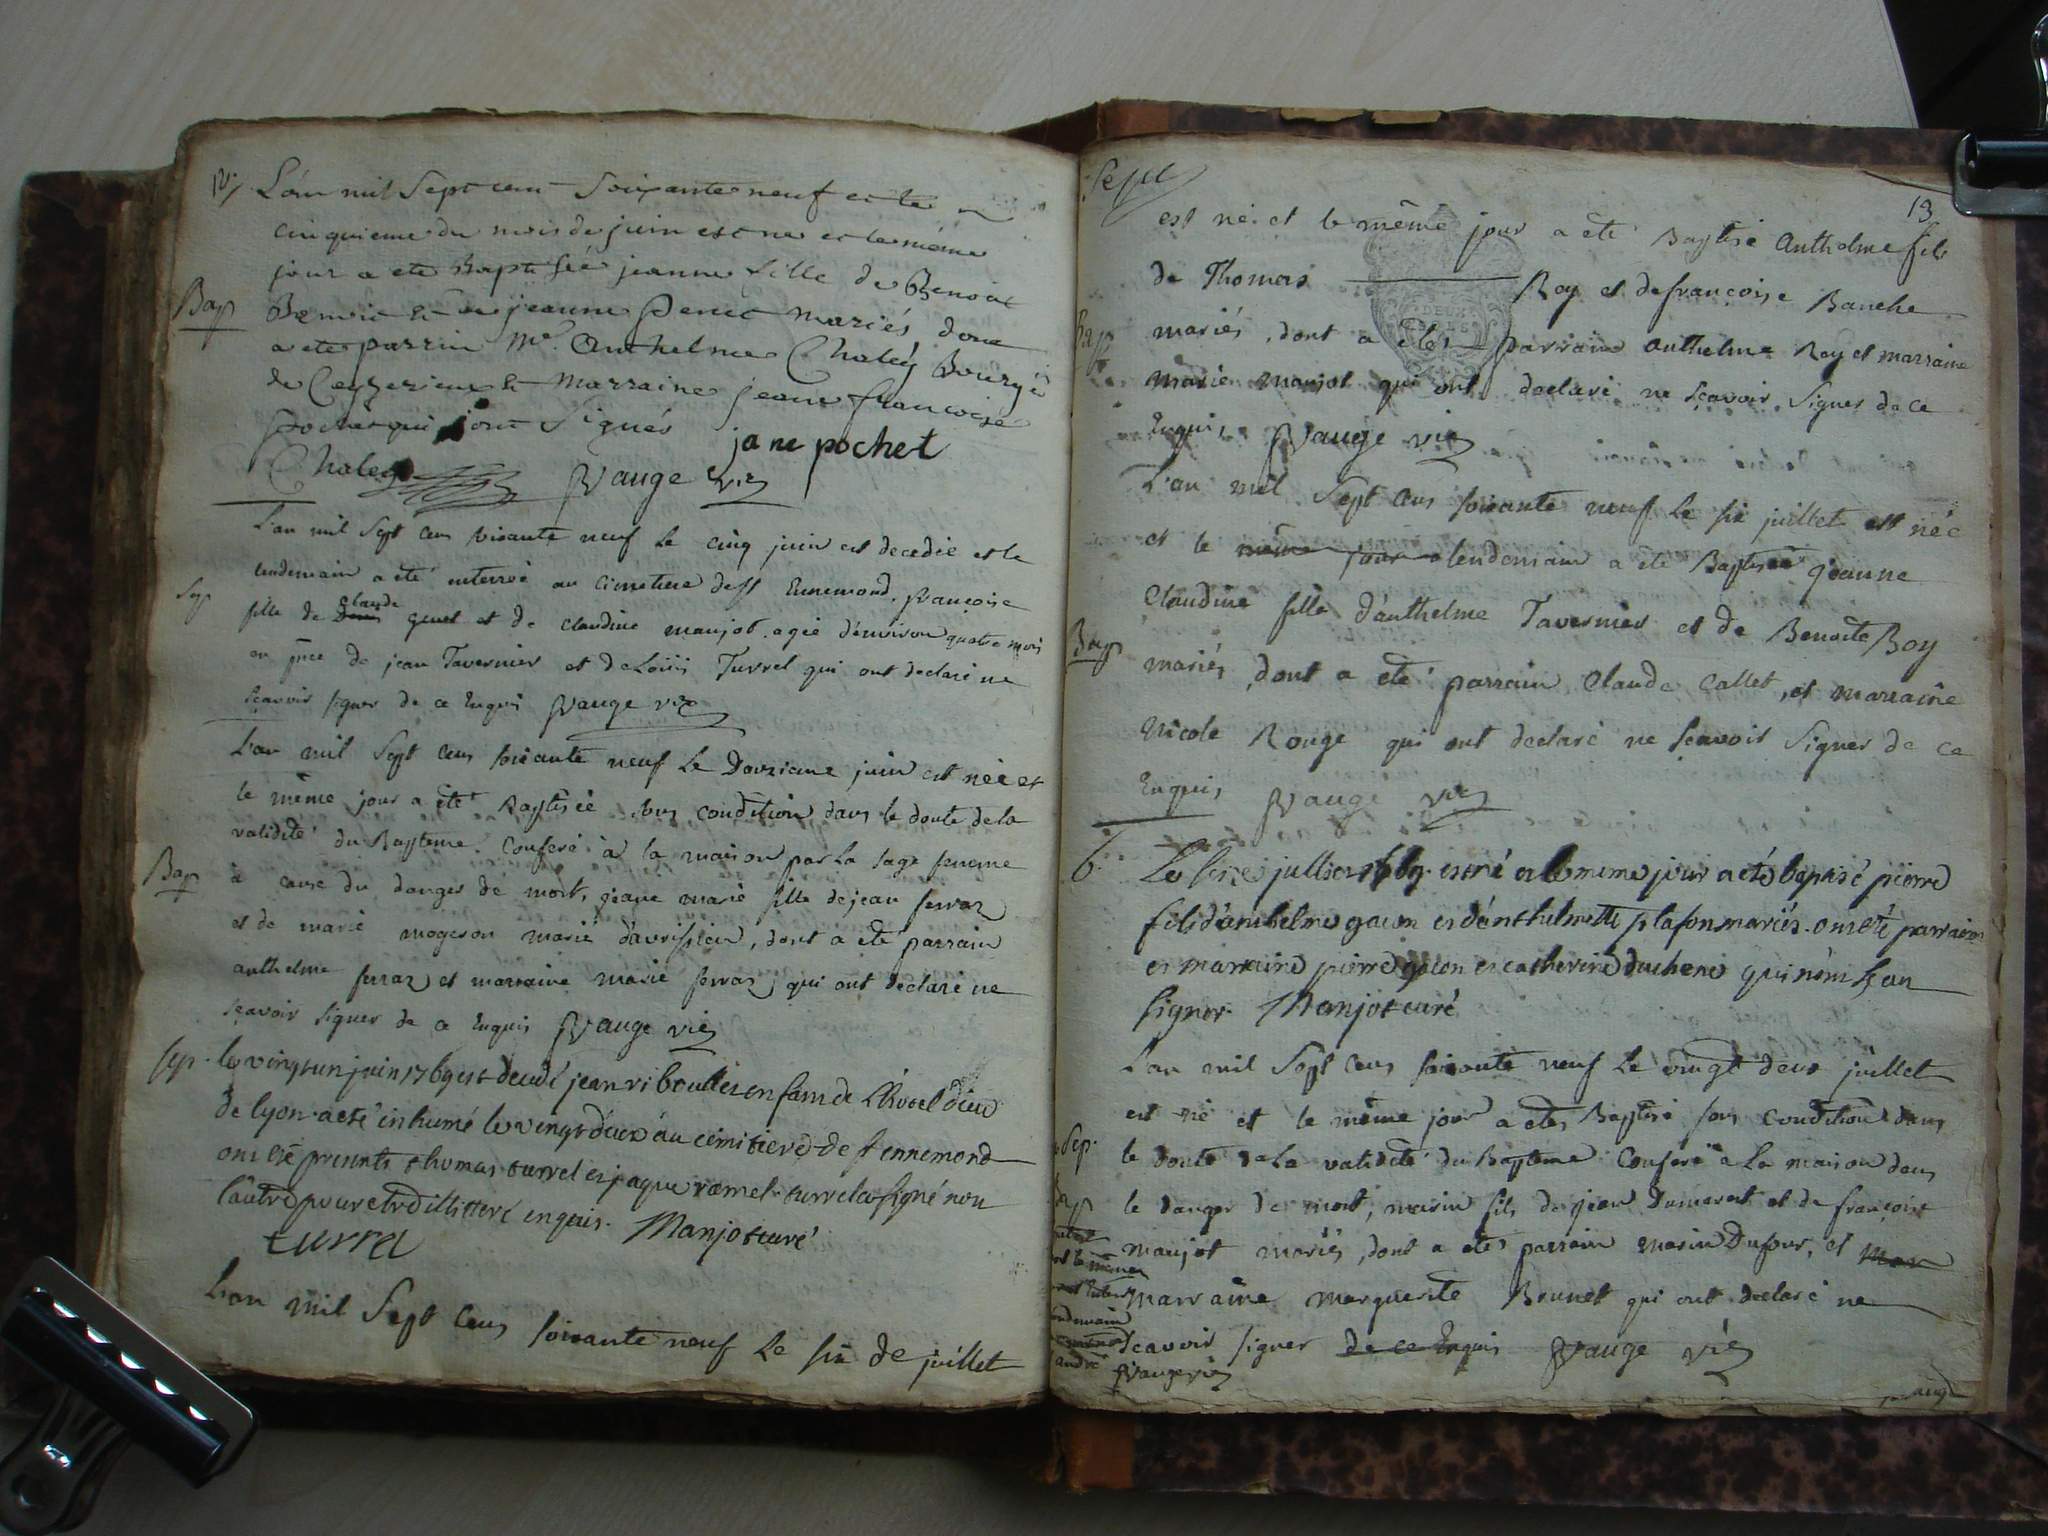 12 L'an mil Sept cent Soixante neuf et le
cinquieme du mois de juin est ne et le même
jour a ete Baptisée jeanne fille de Benoit
Bap
jeanne Peret mariés dont
a ete parrin Mr. Anthelme Chaley Bourgé
de Ceyzerieu et Marraine jeane françoise
pochet qui sont Signés jane pochet
Chaley Vauge vic
L'an mil Sept cens soixante neuf le cinq juin est decedée et le
Sep lendemain a eté enterrée au cimetiere de st Ennemond, françoise
fille de claude genet et de claudine manjot agée d'environ quatre mois
en pnce de jean Tavernier et de Loüis Turrel qui ont declaré ne
sçavoir signer de ce Enquis Vauge vic
L'an mil Sept cens soixante neuf le Douzieme juin est née et
le même jour a été Baptisée sous condition dans le doute de la
validité du Bapteme Conferé à la maison par la sage femme
Bap à cause du danger de mort, jeane marie fille de jean ferraz
et de marie mogeron marié d'avrissieu, dont a été parrain
anthelme ferraz et marraine marie ferraz qui ont declaré ne
sçavoir signer de ce Enquis Vauge vic
sep. le vingt un juin 1769 est decedé jean ri boullier enfant de L'hotel dieu
de lyon a eté inhumé le vingt deux au cimitiere de st ennemond
ont été presents thomas turrel et jaque ramel turrel a signé non
l'autre pour etre illitteré enquis. Manjot curé
turrel
L'an mil Sept cens soixante neuf le six de juillet
Sept
13
est né et le même jour a eté Baptisé Anthelme fils
de Thomas Roy et de françoise Banche
Bap mariés, dont a été parrain anthelme Roy et marraine
marie manjot qui ont declaré ne sçavoir signer de ce
Enquis Vauge vic
L'an mil Sept cens soixante neuf le six juillet est née
et le même jour a lendemain a été Baptisée jeanne
Claudine fille d'anthelme Tavernier et de Benoite Roy
Bap mariés, dont a été parrain Claude Callet, et marraine
Nicole Rouge qui ont declaré ne sçavoir signer de ce
Enquis Vauge vic
b. Le seize jullier 1769. est né et le meme jour a eté baptisé pierre
fils d'anthelme gacon et d'anthelmette plafon mariés. ont été parrain
et marraine pierre gacon et catherine duchene qui n'ont sçau
signer. Manjot curé
L'an mil Sept cens soixante neuf le vingt deux juillet
est né et le même jour a été Baptisé sous condition dans
Sep. le doute de la validité du Bapteme Conferé à la maison dans
Bap le danger de mort, marin fils de jean Dumarest et de françoise
manjot mariés, dont a été parrain marin Dufour, et mar
marraine marguerite Brunet qui ont declaré ne
sçavoir signer de ce Enquis Vauge vic
Vauge vic